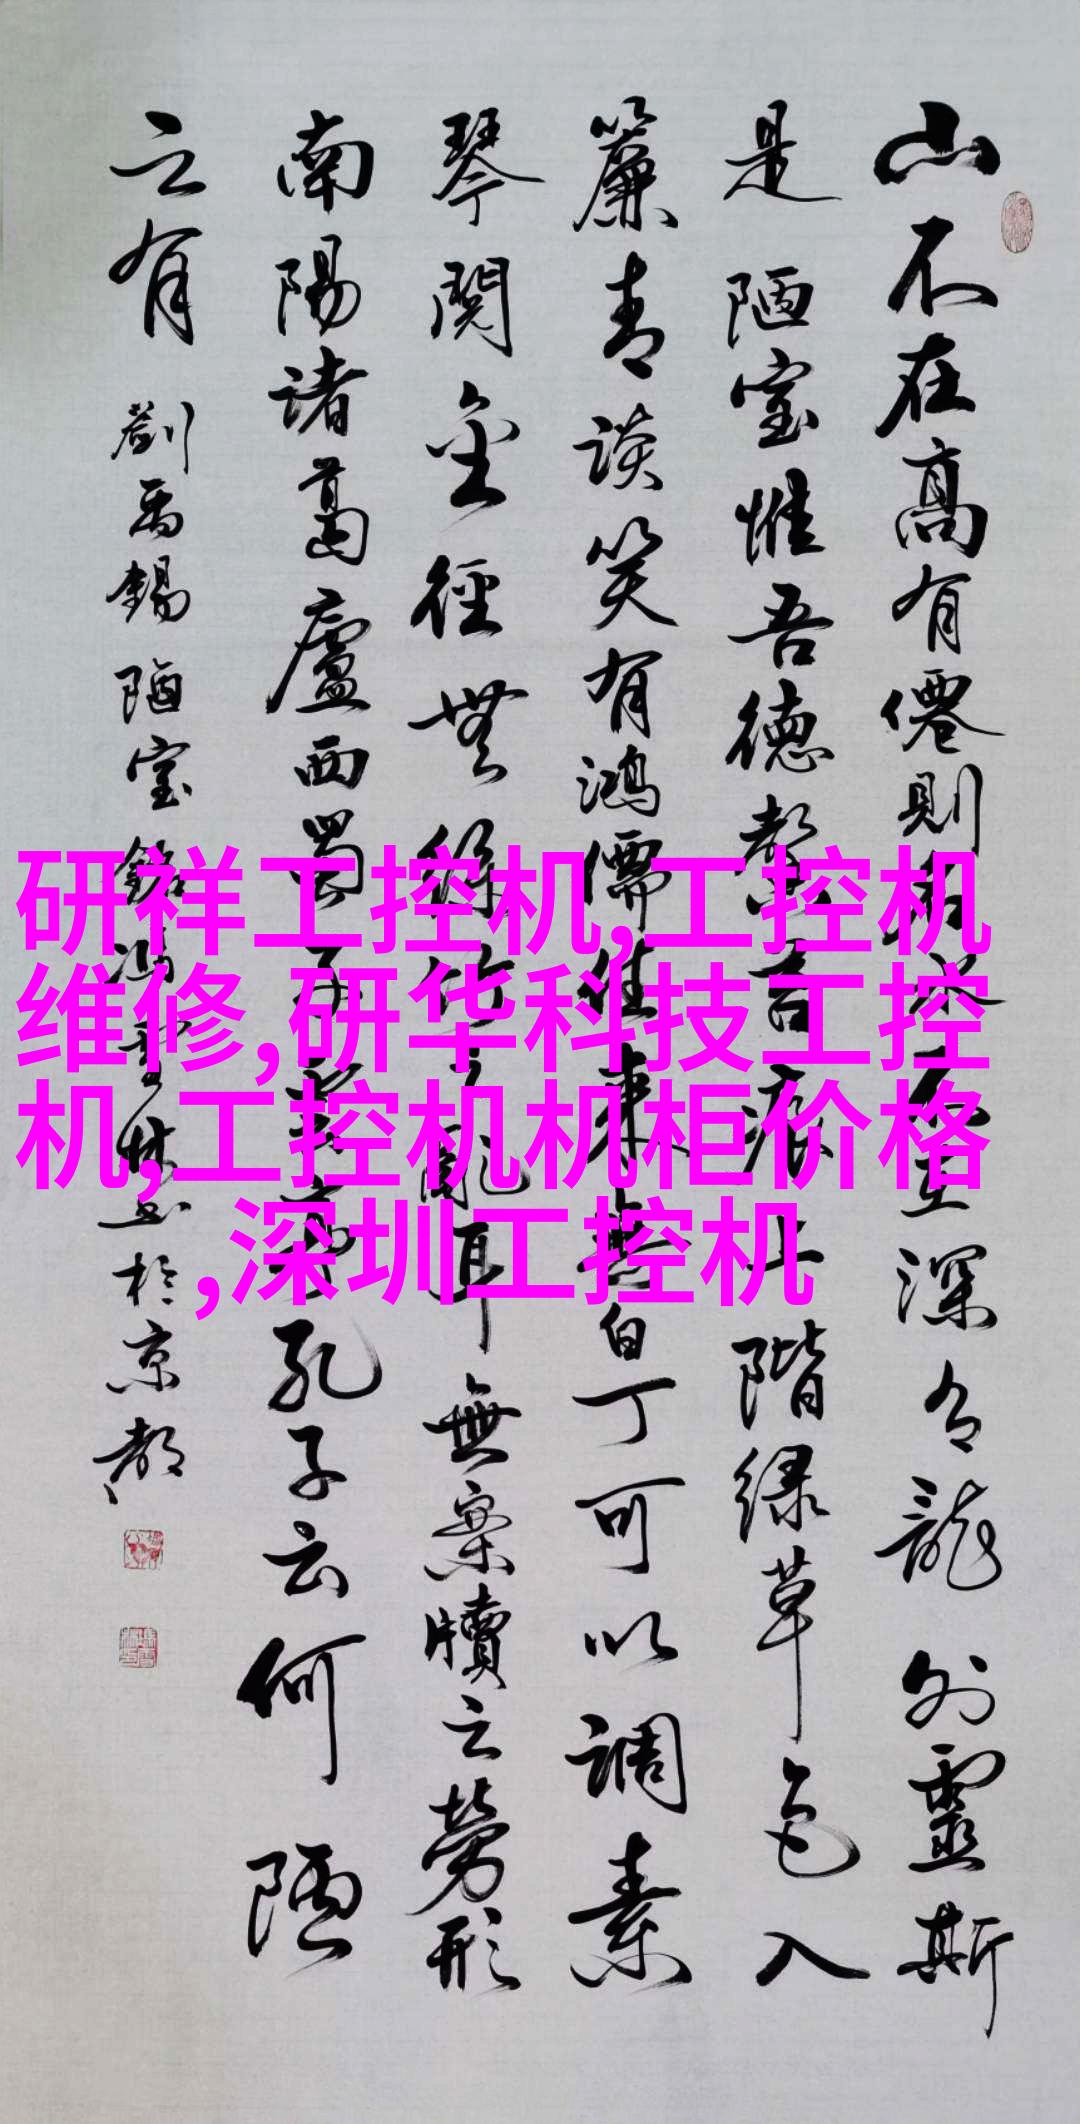 山不在高有僊則名水不在深有龍則靈斯
是陋室惟吾德馨苔痕上階绿草色入
簾青談笑有鴻儒往来無白丁可以調素
琴閲金經無絲竹之亂耳無案牘之勞形
南陽諸葛廬西蜀子雲亭孔子云何陋
之有
劉禹錫陋室銘 於京都
研祥工控机,工控机
维修,研华科技工控
机,工控机机柜价格
,深圳工控机